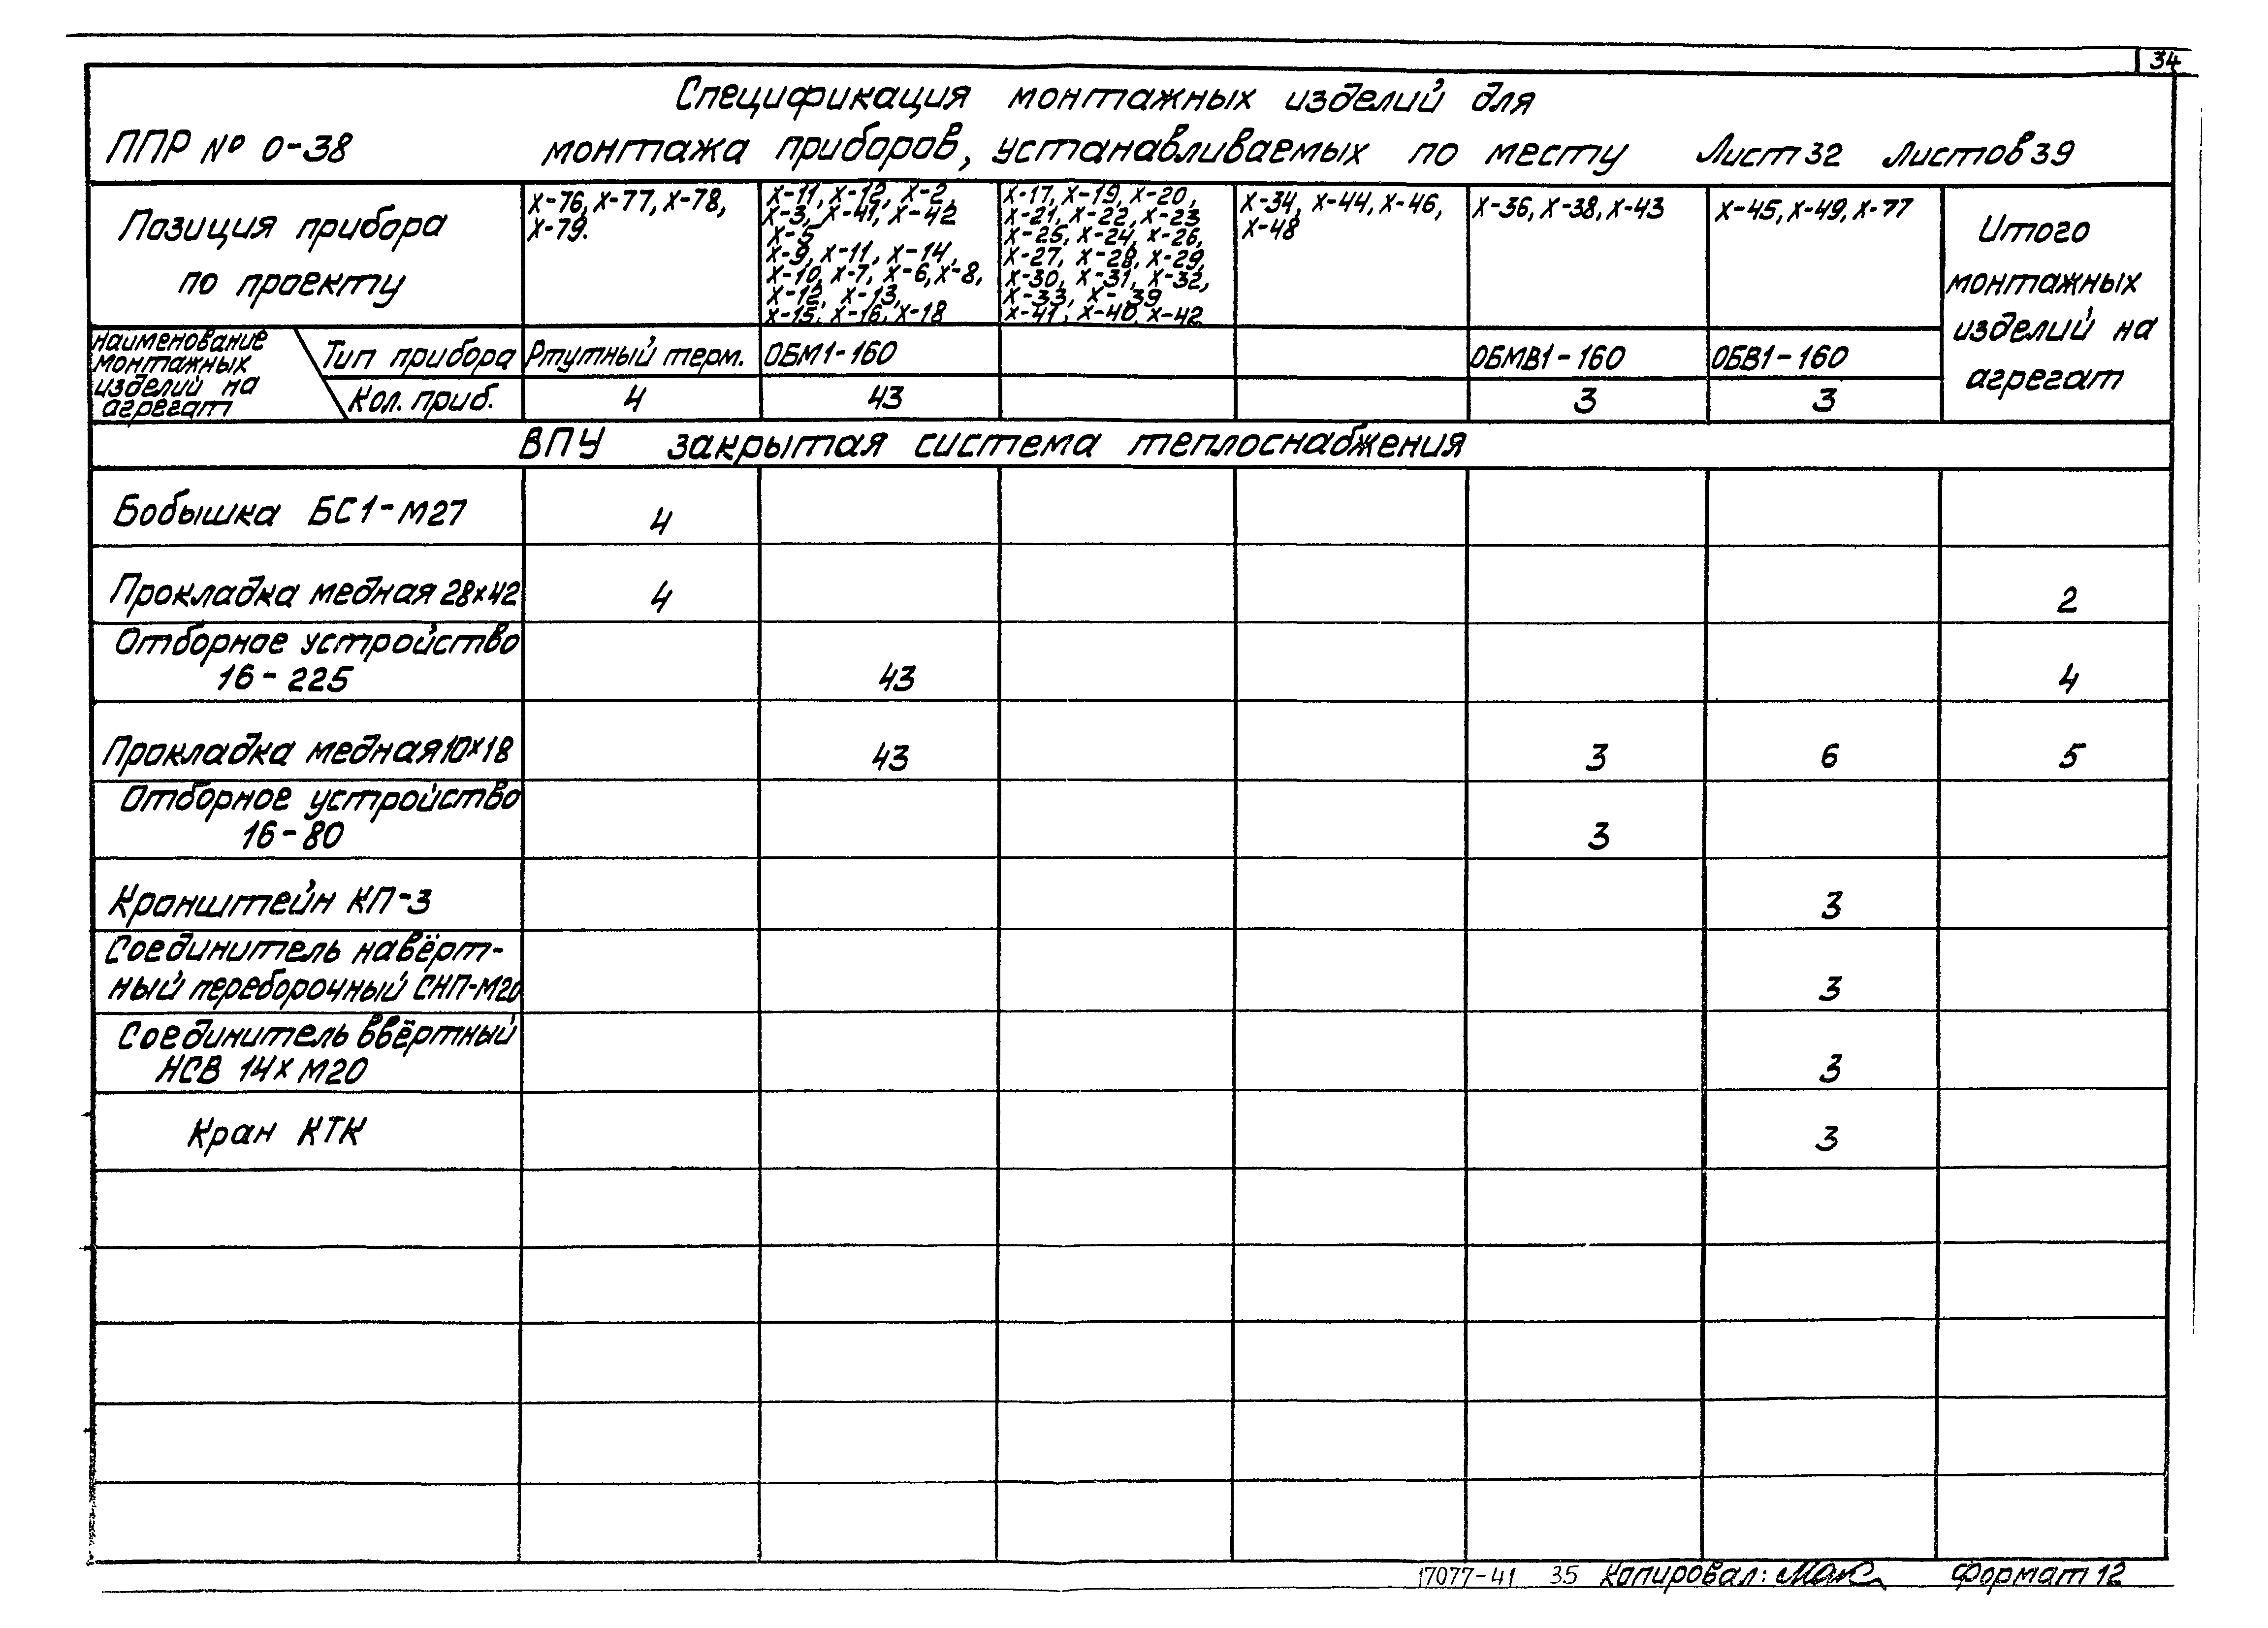 34
Спецификация монтажных изделий для
ППР № 0-38 монтажа приборов, устанавливаемых по месту Лист 32 Листов 39
Позиция прибора
по проекту
х-76, х-77, х-78,
х-79.
х-11, х-12, х-2,
х-3, х-41, х-42
х-5
х-9, х-11, х-14,
х-10, х-7, х-6, х-8,
х-12, х-13,
х-15, х-16, х-18
х-17, х-19, х-20,
х-21, х-22, х-23
х-25, х-24, х-26,
х-27, х-28, х-29,
х-30, х-31, х-32,
х-33, х-39
х-41, х-40, х-42
х-34, х-44, х-46,
х-48
х-36, х-38, х-43
х-45, х-49, х-77
Итого
монтажных
изделий на
агрегат
Наименование
монтажных
изделий на
агрегат
Тип прибора Ртутный терм. ОБМ1-160 ОБМВ1-160 ОБВ1-160
Кол. приб. 4 43 3 3
ВПУ закрытая система теплоснабжения
Бобышка БС1-М27 4
Прокладка медная 28х42 4 2
Отборное устройство
16-225 43 4
Прокладка медная 10х18 43 3 6 5
Отборное устройство
16-80 3
Кронштейн КП-3 3
Соединитель навёрт-
ный переборочный СНП-М20 3
Соединитель ввёртный
НСВ 14х М20 3
Кран КТК 3
17077-41 35 Копировал: Формат 12